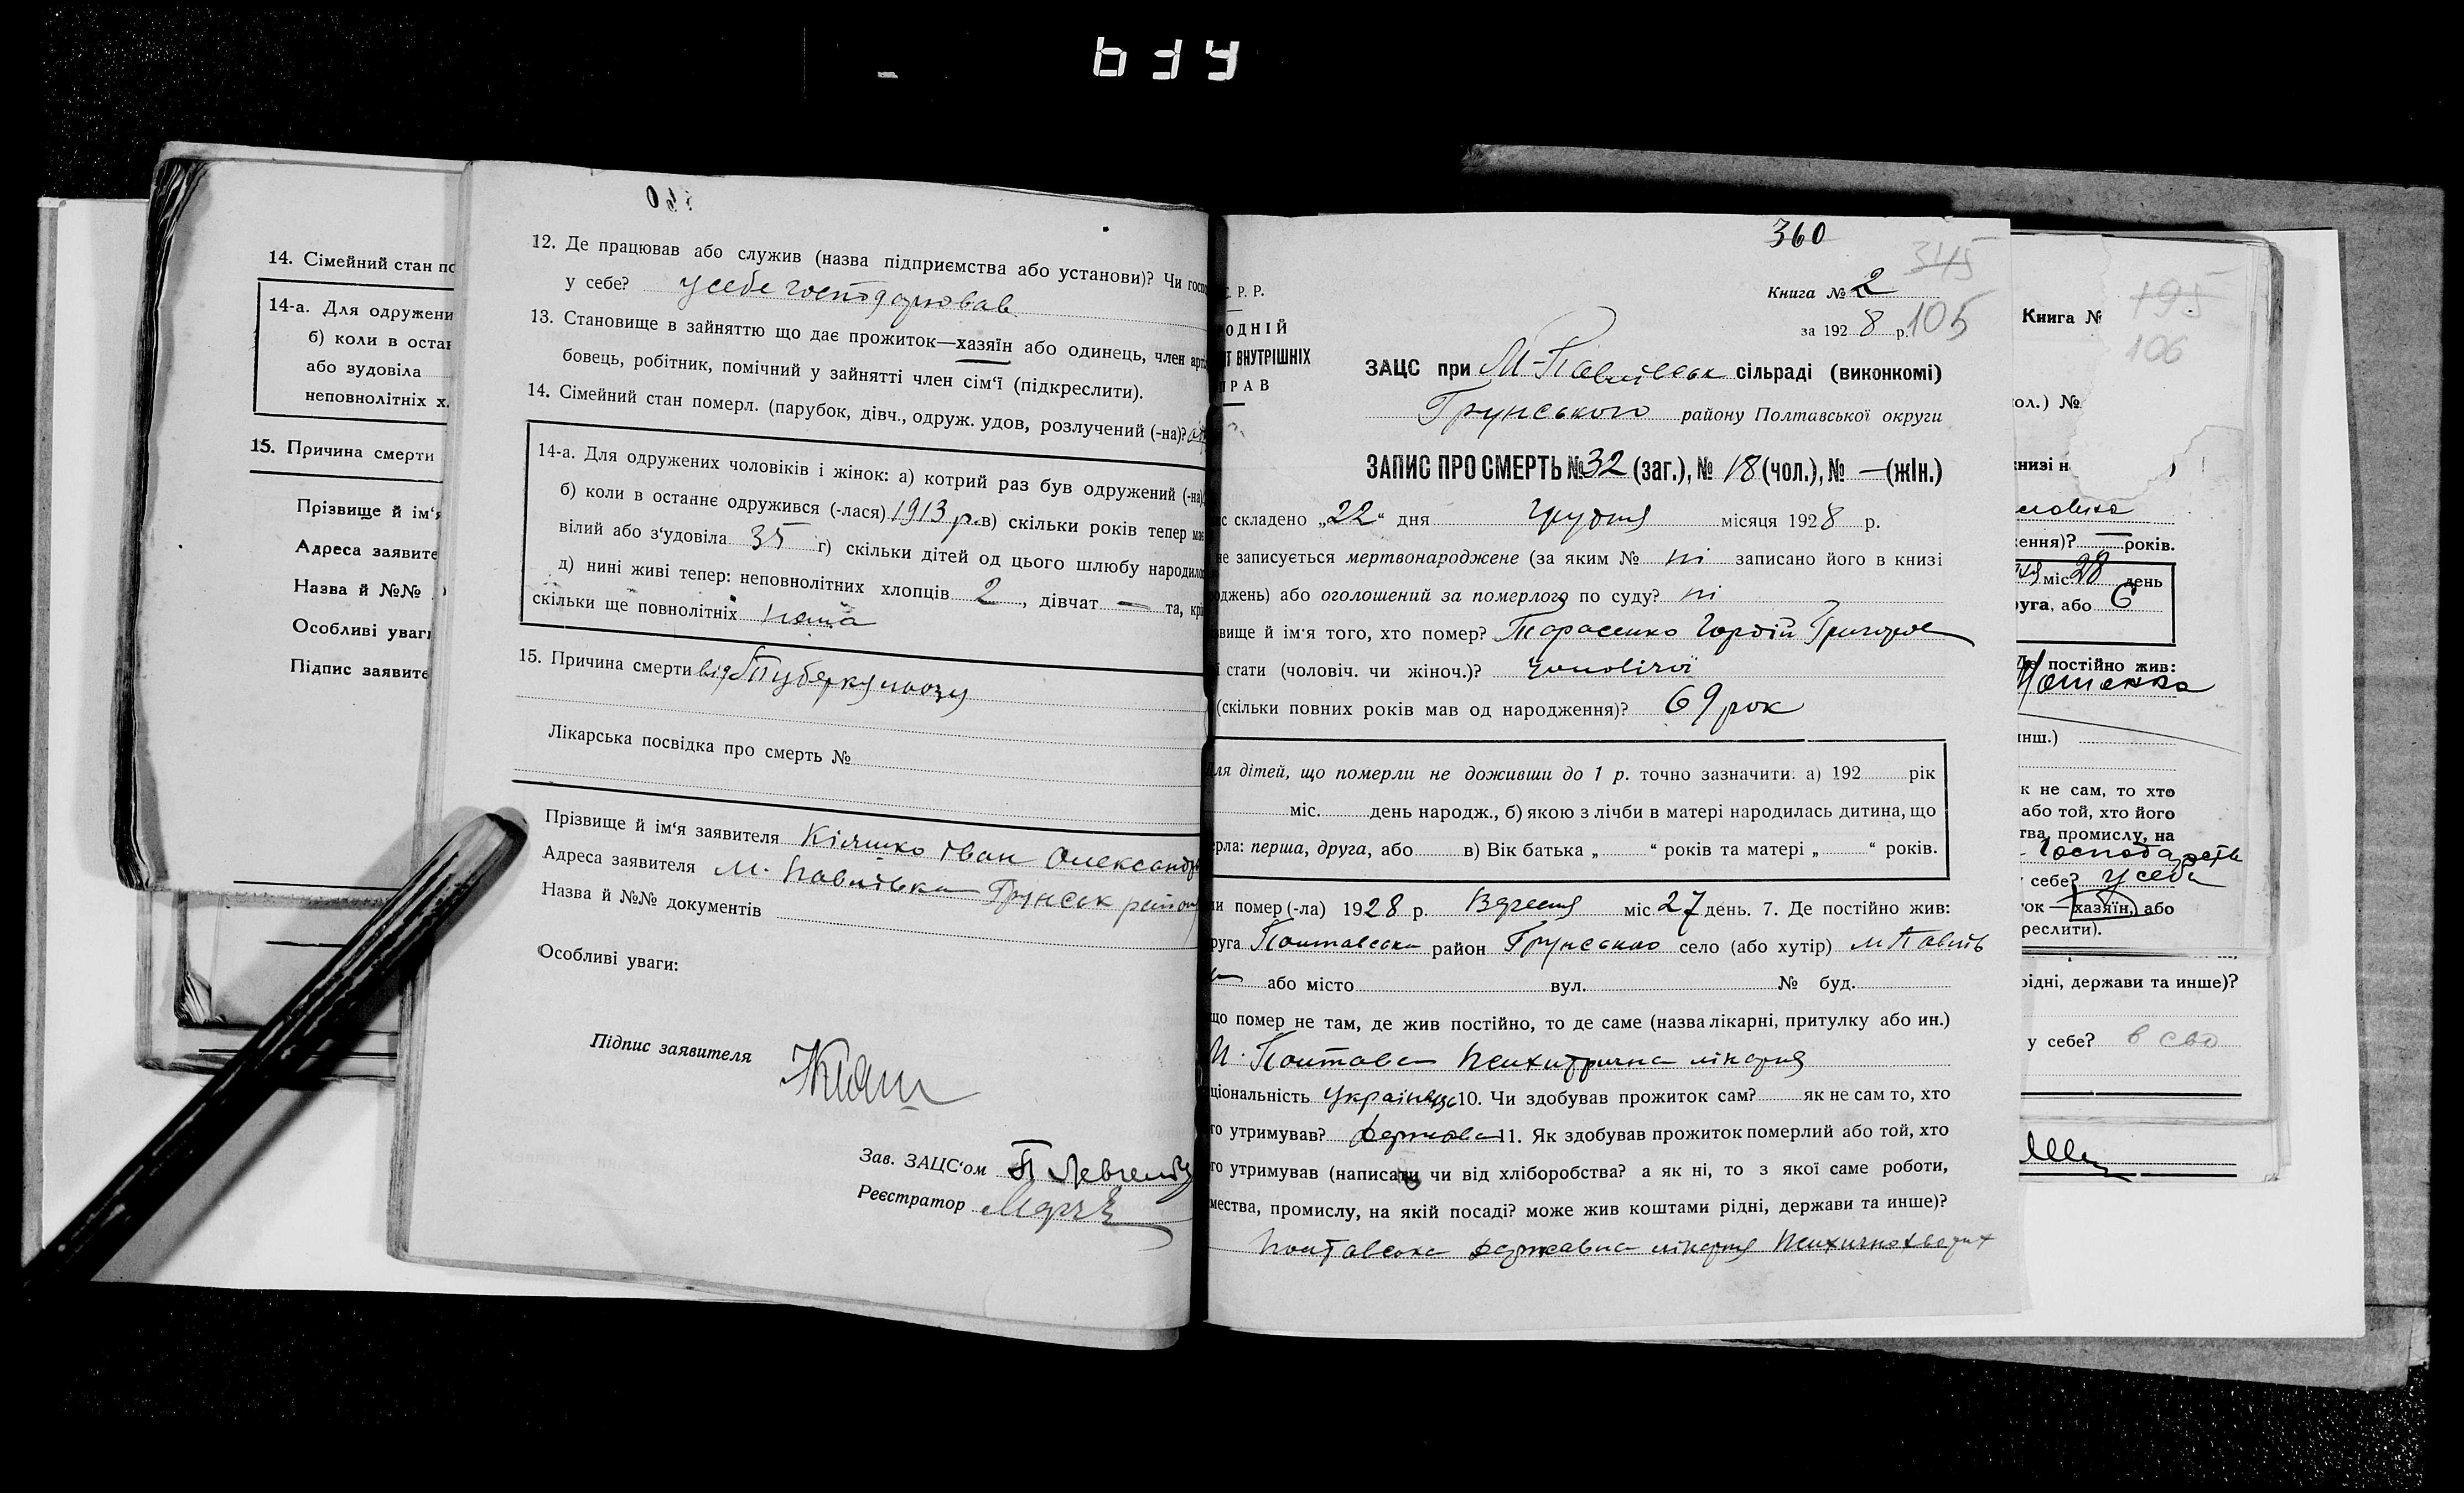 14. Сімейний стан по
14-а. Для одружени
б) коли в остан
або зудовіла
неповнолітніх х.
15. Причина смерти
Прізвище й ім'я
Адреса заявите
Назва й №№
Особливі уваги
Підпис заявите
12. Де працював або служив (назва підприємства або установи)? Чи госпо
у себе? у себе господарював
13. Становище в зайняттю що дає прожиток—хазяїн або одинець, член арті
бовець, робітник, помічний у зайнятті член сім'ї (підкреслити).
14. Сімейний стан померл. (парубок, дівч., одруж. удов, розлучений (-на)?
14-а. Для одружених чоловіків і жінок: а) котрий раз був одружений (-на)
б) коли в останнє одружився (-лася) 1913 р. в) скільки років тепер має
вілий або з'удовіла 35 г) скільки дітей од цього шлюбу народило
д) нині живі тепер: неповнолітних хлопців 2, дівчат — та, крі
скільки ще повнолітніх нема
15. Причина смерти від Туберкульозу
Лікарська посвідка про смерть №
Прізвище й ім'я заявителя Кіяшко Іван Олександр
Адреса заявителя М. Павлівка Грунськ району
Назва й №№ документів
Особливі уваги:
Підпис заявителя Кіяш
Зав. ЗАЦС'ом П Левченко
Реєстратор
360
345
С. Р. Р.
Книга № 2
за 1928 р. 105
РОДНІЙ
Т ВНУТРІШНІХ
ПРАВ
ЗАЦС при М-Павлівськ сільраді (виконкомі)
Грунського району Полтавської округи
ЗАПИС ПРО СМЕРТЬ № 32 (заг.), № 18 (чол.), № — (жін.)
с складено „22“ дня грудня місяця 1928 р.
не записується мертвонароджене (за яким № ні записано його в книзі
оджень) або оголошений за померлого по суду? ні
вище й ім'я того, хто помер? Тарасенко Гордій Григоров
ї стати (чоловіч. чи жіноч.)? чоловічої
(скільки повних років мав од народження)? 69 рок
Для дітей, що померли не доживши до 1 р. точно зазначити: а) 192 рік
міс. день народж., б) якою з лічби в матері народилась дитина, що
ерла: перша, друга, або в) Вік батька „ “ років та матері „ “ років.
ли помер (-ла) 1928 р. Вересня міс 27 день. 7. Де постійно жив:
руга Полтавська район Грунського село (або хутір) м Павлів
або місто вул. № буд.
що помер не там, де жив постійно, то де саме (назва лікарні, притулку або ин.)
М. Полтава Психитрична лікарня
ціональність Українець 10. Чи здобував прожиток сам? як не сам то, хто
го утримував? Держава 11. Як здобував прожиток померлий або той, хто
го утримував (написати чи від хліборобства? а як ні, то з якої саме роботи,
мества, промислу, на якій посаді? може жив коштами рідні, держави та инше)?
Полтавська державна лікарня психичнохворих
Книга №
195
106
ол.) №
книзі н
ження)? — років.
міс. 28 день
руга, або 6
Де постійно жив:
инш.)
к не сам, то хто
або той, хто його
тва, промислу, на
господарств
себе? у себе
ок — хазяїн, або
реслити).
рідні, держави та инше)?
у себе? в сво